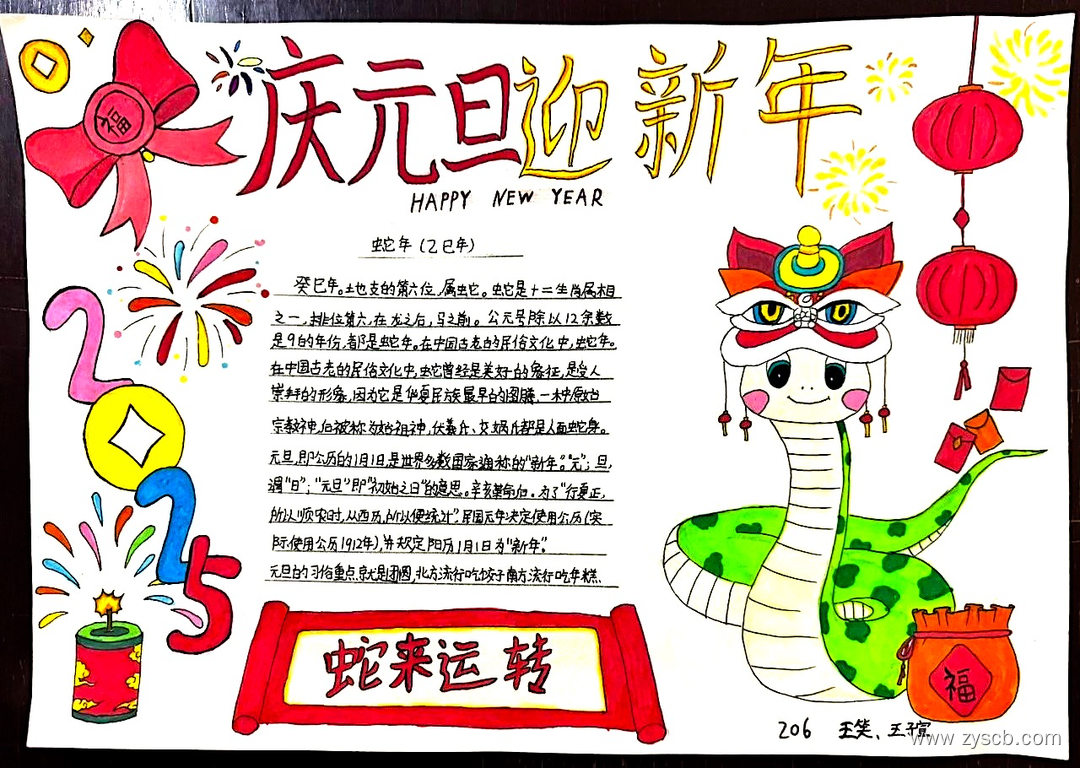 福
庆元旦迎新年
HAPPY NEW YEAR
蛇年(乙巳年)
癸巳年。地支的第六位,属蛇。蛇是十二生肖属相
之一,排位第六,在龙之后,马之前。公元号除以12余数
是9的年份,都是蛇年。在中国古老的民俗文化中,蛇年。
在中国古老的民俗文化中,蛇曾经是美好的象征,是受人
崇拜的形象,因为它是华夏民族最早的图腾,一种原始
宗教神,后被称为始祖神,伏羲氏、女娲氏都是人面蛇身。
元旦,即公历的1月1日是世界多数国家通称的"新年"。"元";旦,
谓"日";"元旦"即"初始之日"的意思。辛亥革命后。为了"行夏正,
所以顺农时,从西历,所以便统计",民国元年决定使用公历(实
际使用公历1912年),并规定阳历1月1日为"新年"。
元旦的习俗重点就是团圆,北方流行吃饺子南方流行吃年糕.
2025
蛇来运转
福
206 王笑、王子宣
www.zyscb.com